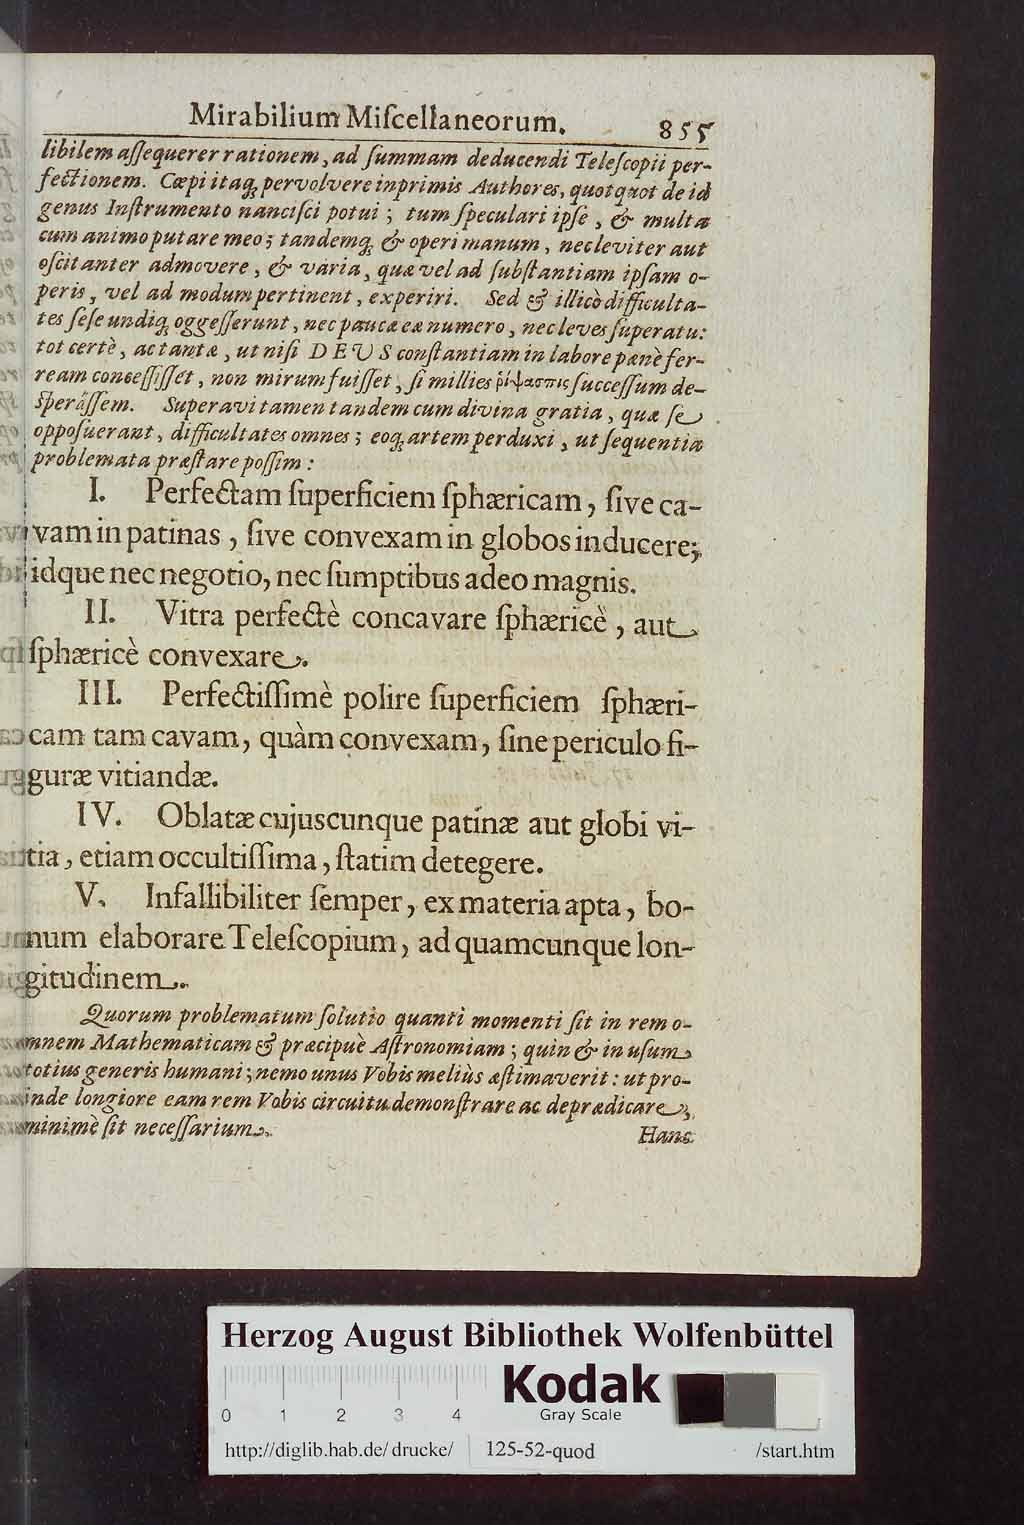 Mirabilium Miſcellaneorum. 855
libilem aſſequerer rationem, ad ſummam deducendi Teleſcopii per-
fectionem. Cœpi itaq; pervolvere inprimis Authores, quotquot de id
genus Inſtrumento nanciſci potui; tum ſpeculari ipſe, & multa
cum animo putare meo; tandemq; & operi manum, nec leviter aut
oſcitanter admovere, & varia, quæ vel ad ſubſtantiam ipſam o-
peris, vel ad modum pertinent, experiri. Sed & illicò difficulta-
tes ſeſe undiq; oggeſſerunt, nec paucæ eæ numero, nec leves ſuperatu:
tot certè, ac tantæ, ut niſi DEUS conſtantiam in labore pænè fer-
ream conceſſiſſet, non mirum fuiſſet, ſi millies ῥίψασπις ſucceſſum de-
ſperâſſem. Superavi tamen tandem cum divina gratia, quæ ſe
oppoſuerant, difficultates omnes; eoq; artem perduxi, ut ſequentia
problemata præſtare poſſim:
I. Perfectam ſuperficiem ſphæricam, ſive ca-
vam in patinas, ſive convexam in globos inducere;
idque nec negotio, nec ſumptibus adeo magnis.
II. Vitra perfectè concavare ſphæricè, aut
ſphæricè convexare.
III. Perfectiſſimè polire ſuperficiem ſphæri-
cam tam cavam, quàm convexam, ſine periculo fi-
guræ vitiandæ.
IV. Oblatæ cujuscunque patinæ aut globi vi-
tia, etiam occultiſſima, ſtatim detegere.
V. Infallibiliter ſemper, ex materia apta, bo-
num elaborare Teleſcopium, ad quamcunque lon-
gitudinem.
Quorum problematum ſolutio quanti momenti ſit in rem o-
mnem Mathematicam & præcipuè Aſtronomiam; quin & in uſum
totius generis humani; nemo unus Vobis meliùs æſtimaverit: ut pro-
inde longiore eam rem Vobis circuitu demonſtrare ac deprædicare,
minimè ſit neceſſarium.
Hanc
Herzog August Bibliothek Wolfenbüttel
0 1 2 3 4
Kodak
Gray Scale
http://diglib.hab.de/drucke/ 125-52-quod /start.htm